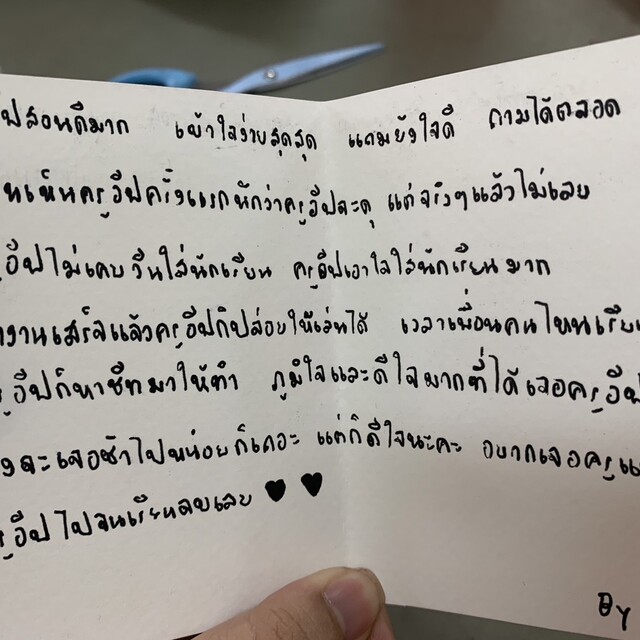 ปสอนดีมาก เข้าใจง่ายสุดสุด แถมยังใจดี ถามได้ตลอด
นเห็นครูอีฟครั้งแรกนึกว่าครูอีฟจะดุ แต่จริงๆแล้วไม่เลย
อีฟไม่เคยวีนใส่นักเรียน ครูอีฟเอาใจใส่นักเรียนมาก
งานเสร็จแล้วครูอีฟก็ปล่อยให้เล่นได้ เวลาเพื่อนคนไหนเรีย
อีฟก็หาชีทมาให้ทำ ภูมิใจและดีใจมากที่ได้เจอครูอีฟ
งจะเจอช้าไปหน่อยก็เถอะ แต่ก็ดีใจนะคะ อยากเจอครู
อีฟไปจนเรียนจบเลย ♥ ♥
By